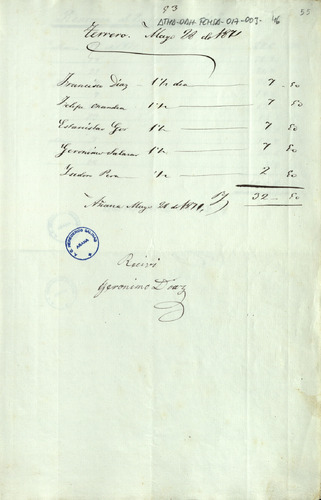 53
ATHA-DAH-FCHSA-017-003-46
55
Terrero. Mayo 28 de 1871
Francisco Diaz 1 1/2 dia 7 50
Felipe 1 1/2 7 50
Estanislao 1 1/2 7 50
Geronimo Salazar 1 1/2 7 50
Isidro 1/2 2 50
Añana Mayo 28 de 1871, 32 50
Recivi
Geronimo Diaz
AÑANA